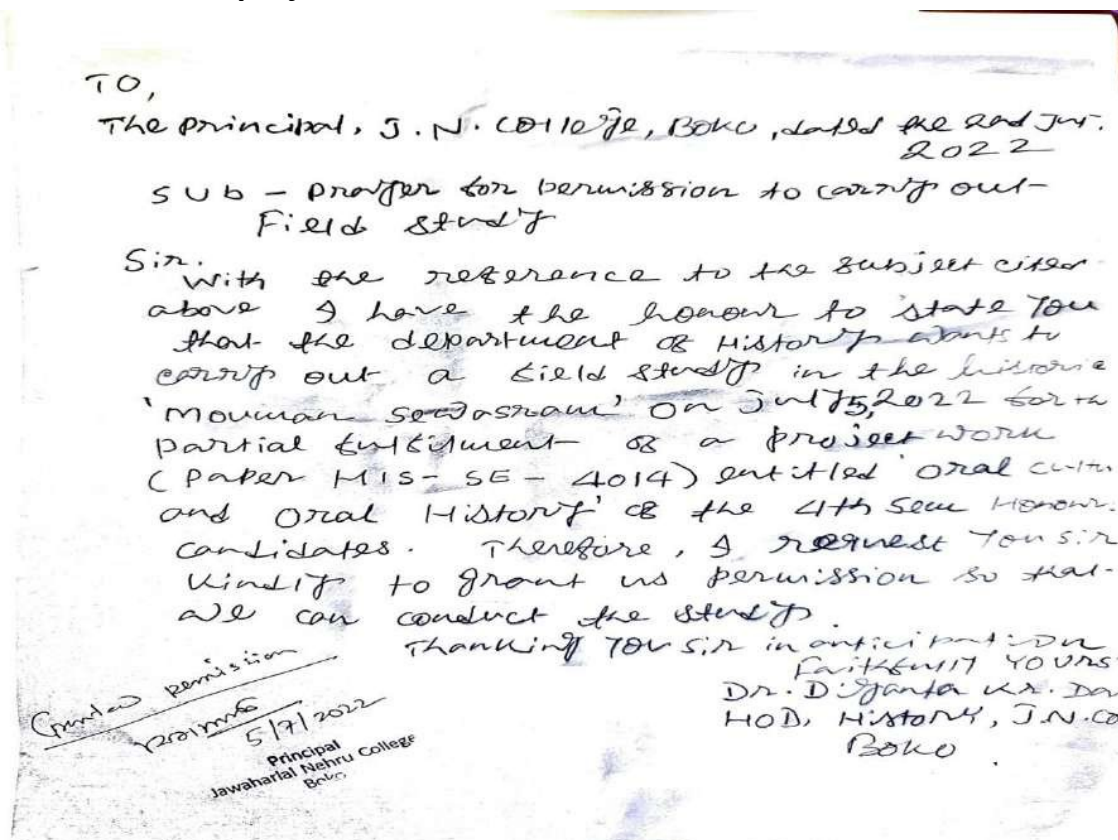 TO,
The Principal, J. N. College, Boko, dated the 2nd
2022
Sub - Prayer for permission to carry out
Field study
Sir.
With the reference to the subject cited
above I have the honour to state you
that the department of History wants to
carry out a field study in the historic
'Mouman Sevasram' on July 5, 2022 for
partial fulfilment of a project work
(Paper HIS-SE-4014) entitled 'Oral
and Oral History' of the 4th Sem Honour
candidates. Therefore, I request you sir
kindly to grant us permission so that
we can conduct the study.
Thanking you sir in anticipation
Faithfully Yours
Dr. Diganta Kr. Da
HOD, History, J.N. Co
Boko
Granted permission
5/7/2022
Principal
Jawaharlal Nehru College
Boko